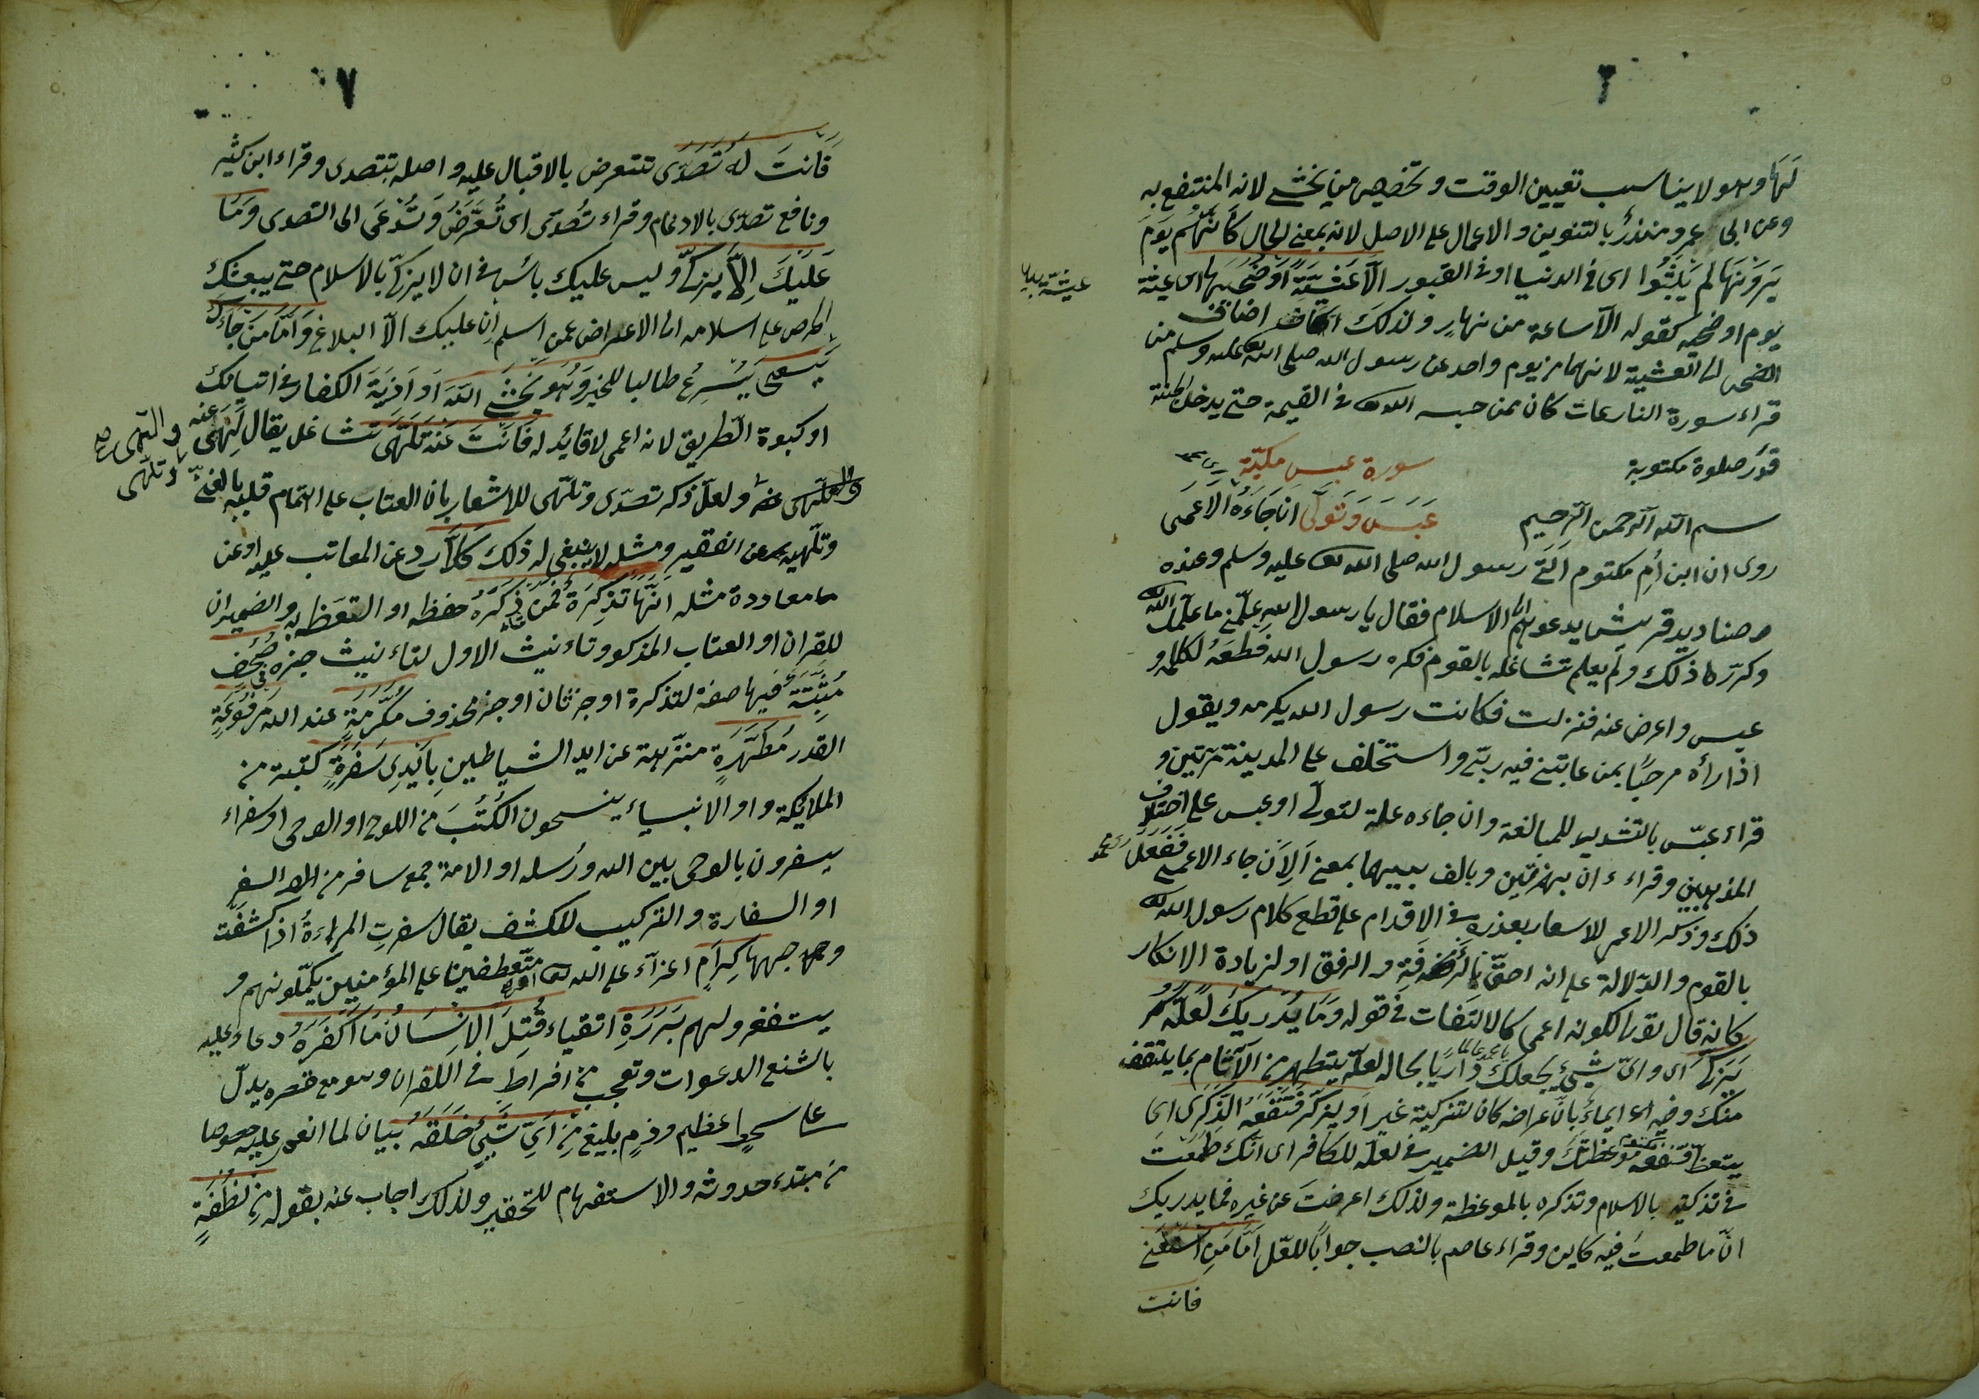 لَهَا وهو لا يناسب تعيين الوقت وتخصيص من يخشى لانه المنتفع به
وعن ابى عمرو منذرٌ بالتنوين والاعمال على الاصل لانه بمعنى الحال كَاَنَّهُم يَومَ
يَرَونَهَا لَم يَلبَثُوا اى فى الدنيا او فى القبور اِلّا عَشِيَّةً اَو ضُحٰىهَا اى عشية
يوم او ضحيه كقوله الّا ساعة من نهارٍ ولذلك اضاف
الضحى الى العشية لانهما من يوم واحد عن رسول الله صلى الله عليه وسلم من
قراء سورة النازعات كان ممن حبسه الله فى القيمة حتى يدخل الجنة
قدر صلوة مكتوبة
سورة عبس مكيّة
بسم الله الرحمن الرحيم عَبَسَ وَتَوَلّٰى اَن جَاءَهُ الاَعمٰى
روى ان ابن اُم مكتوم اتى رسول الله صلى الله عليه وسلم وعنده
صناديد قريش يدعوهم الى الاسلام فقال يا رسول الله علّمنى ما علّمك الله
وكرّر ذلك ولم يعلم تشاغله بالقوم فكره رسول الله قطعَهُ لكلامه و
عبس واعرض عنه فنزلت فكانت رسول الله يكرمه ويقول
اذا رأه مرحبًا بمن عاتبنى فيه ربّى واستخلف على المدينة مرّتين و
قراء عبّس بالتشديد للمبالغة وان جاءه علة لتولّى او عبس على اختلاف
المذهبين وقراء ءان بهمزتين وبالف بينهما بمعنى اَلِاَن جاء الاعمى فَعَلَ
ذلك وذكر الاعمى للاشعار بعذره فى الاقدام على قطع كلام رسول الله
بالقوم والدّلالة على انه احقّ بالرأفة والرفق او لزيادة الانكار
كانه قال تولّى لكونه اعمى كالالتفات فى قوله وَمَا يُدرِيكَ لَعَلَّهُ
يَزَّكّٰى اى واىّ شىء يجعلك داريًا بحاله لعلّه يتطهر من الآثام بما يتلقف
منك وفيه ايماءٌ بانّ اعراضه كان لتزكية غيره اَو يَذَّكَّرُ فَتَنفَعَهُ الذِّكرٰى او
يتعظ فتنفعه موعظتك وقيل الضمير فى لعلّه للكافر اى انّك طمعت
فى تزكيته بالاسلام وتذكره بالموعظة ولذلك اعرضت عن غيره فما يدريك
انّ ما طمعت فيه كاين وقراء عاصم بالنصب جوابًا للعلّ اَمّا مَنِ استَغنٰى
فانت
٧
فَاَنتَ لَهُ تَصَدّٰى تتعرض بالاقبال عليه واصله تتصدى وقراء ابن كثير
ونافع تصّدّى بالادغام وقراء تُصدّى اى تُعَرَّضُ وَتُدعَى الى التصدى وَمَا
عَلَيكَ اَلّا يَزَّكّٰى وليس عليك بأس فى ان لا يزكّى بالاسلام حتى يبعثك
الحرص على اسلامه الى الاعراض عمن اسلم اِن عليك الّا البلاغ وَاَمّا مَن جَاءَكَ
يَسعٰى يُسرِعُ طالبا للخير وَهُوَ يَخشٰى اللهَ او اَذيّةَ الكفار فى اتيانك
او كبوة الطريق لانه اعمى لا قائد له فَاَنتَ عَنهُ تَلَهّٰى تتشاغل يقال لَهِىَ عنه والتهى
وتلهّى ولعل ذكر تصدّى وتلهّى للاشعار بان العتاب على اهتمام قلبه بالغنى
وتلهيه عن الفقير ومثله لا ينبغى له ذلك كَلّا ردع عن المعاتب عليه او عن
معاودة مثله اِنَّهَا تَذكِرَةٌ فَمَن شَاءَ ذَكَرَهُ حفظه او اتّعظ به والضميران
للقران او العتاب المذكور وتاءنيث الاول لتاءنيث خبره فى صُحُفٍ
مُثبَتَة فيها صفة لتذكرة او خبر ثان او خبر محذوف مُكَرَّمَةٍ عند الله مَرفُوعَةٍ
القدر مُطَهَّرَةٍ منزّهة عن ايدى الشياطين بِاَيدِى سَفَرَةٍ كتبة من
الملايكة او الانبياء ينسخون الكُتُبَ من اللوح او الوحى او سفراء
يسفرون بالوحى بين الله ورُسله او الامة جمع سافر من السفر
او السفارة والتركيب للكشف يقال سفرت المراءةُ اذا كشفت
وجهها كِرَامٍ اعزّآء على الله او متعطفين على المؤمنين يكمّلونهم و
يستغفرون لهم بَرَرَةٍ اتقياء قُتِلَ الاِنسَانُ مَا اَكفَرَهُ دعاء عليه
باشنع الدعوات وتعجب من افراطه فى الكفران وهو مع قصره يدلّ
على سخط عظيم وذمٍ بليغ مِن اَىِّ شَىءٍ خَلَقَهُ بيان لما انعم عليه خصوصا
من مبتدء حدوثه والاستفهام للتحقير ولذلك اجاب عنه بقوله مِن نُطفَةٍ